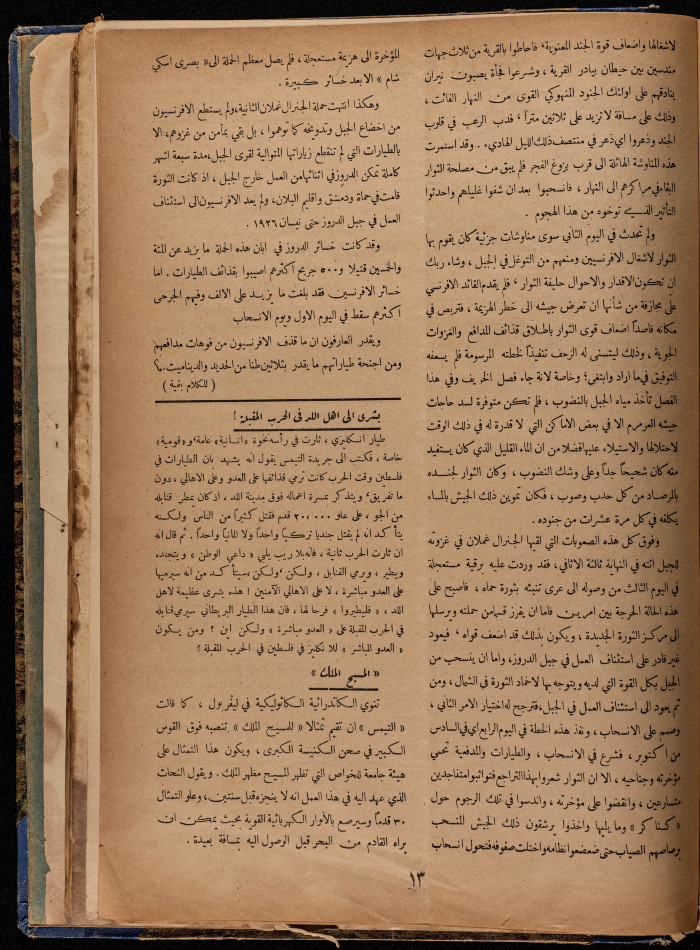 لاشغالها واضعاف قوة الجند المعنوية ، فاحاطوا بالقرية من ثلاث جهات
مندسين بين حيطان بيادر القرية ، وشرعوا فجأة يصبون نيران
بنادقهم على اولئك الجنود المنهوكي القوى من النهار الفائت ،
وذلك على مسافة لا تزيد على ثلاثين متراً ، فدب الرعب في قلوب
الجند وذعروا اي ذعر في منتصف ذلك الليل الهاديء . . وقد استمرت
هذه المناوشة الهائلة الى قرب بزوغ الفجر فلم يبق من مصلحة الثوار
البقاء في مراكزهم الى النهار ، فانسحبوا بعد ان شفوا غليلهم واحدثوا
التأثير الذي توخوه من هذا الهجوم .
ولم تحدث في اليوم الثاني سوى مناوشات جزئية كان يقوم بها
الثوار لاشغال الافرنسيين ومنعهم من التوغل في الجبل ، وشاء ربك
ان تكون الاقدار والاحوال حليفة الثوار ، فلم يقدم القائد الافرنسي
على مجازفة من شأنها ان تعرض جيشه الى خطر الهزيمة ، فتربص في
مكانه قاصداً اضعاف قوى الثوار باطلاق قذائف المدافع والغزوات
الجوية ، وذلك ليتسنى له الزحف تنفيذاً لخطته المرسومة فلم يسعفه
التوفيق في ما اراد وابتغى ؛ وخاصة لانة جاء فصل الخريف وفي هذا
الفصل تأخذ مياه الجبل بالنضوب ، فلم تكن متوفرة لسد حاجات
جيشه العرمرم الا في بعض الاماكن التي لا قدرة له في ذلك الوقت
لاحتلالها والاستيلاء عليها فضلا من ان الماء القليل الذي كان يستفيد
منه كان شحيحاً جداً وعلى وشك النضوب ، وكان الثوار لجنده
بالمرصاد من كل حدب وصوب ، فكان تموين ذلك الجيش بالماء
يكلفه في كل مرة عشرات من جنوده .
وفوق كل هذه الصعوبات التي لقيها الجنرال غملان في غزوته
للجبل اتته في النهاية ثالثة الاثافي ، فقد وردت عليه برقية مستعجلة
في اليوم الثالث من وصوله الى عرى تنبئه بثورة حماه ، فاصبح على
هذه الحالة الحرجة بين امرين فاما ان يفرز قسما من حملته ويرسلها
الى مركز الثورة الجديدة ، ويكون بذلك قد اضعف قواه ، فيعود
غير قادر على استئناف العمل في جبل الدروز ، واما ان ينسحب من
الجبل بكل القوة التي لديه ويتوجه بها لاخماد الثورة في الشمال ، ومن
ثم يعود الى استئناف العمل في الجبل ، فترجح له اختيار الامر الثاني ،
وصمم على الانسحاب ، ونفذ هذه الخطة في اليوم الرابع اي في السادس
من اكتوبر ، فشرع في الانسحاب ، والطيارات والمدفعية تحمي
مؤخرته وجناحيه ، الا ان الثوار شعروا بهذا التراجع فتواثبوا متفاجدين
متسارعين ، وانقضوا على مؤخرته ، واندسوا في تلك الرجوم حول
« كناكر » وما يليها واخذوا يرشقون ذلك الجيش المنسحب
برصاصهم الصياب حتى ضعضعوا نظامه واختلت صفوفه فتحول انسحاب
المؤخرة الى هزيمة مستعجلة ، فلم يصل معظم الحملة الى « بصرى اسكي
شام » الا بعد خسائر كبيرة .
وهكذا انتهت حملة الجنرال غملان الثانية ، ولم يستطع الافرنسيون
من اخضاع الجبل وتدويخه كما توهموا ، بل بقي بمأمن من غزوهم ، الا
بالطيارات التي لم تنقطع زياراتها المتوالية لقرى الجبل ، مدة سبعة اشهر
كاملة تمكن الدروز في اثنائها من العمل خارج الجبل ، اذ كانت الثورة
قامت في حماة ودمشق واقليم البلان ، ولم يعد الافرنسيون الى استئناف
العمل في جبل الدروز حتى نيسان ١٩٢٦ .
وقد كانت خسائر الدروز في ابان هذه الحملة ما يزيد عن المئة
والخمسين قتيلا و ٥٠٠ جريح اكثرهم اصيبوا بقذائف الطيارات . اما
خسائر الافرنسين فقد بلغت ما يزيد على الالف وفيهم الجرحى
اكثرهم سقط في اليوم الاول ويوم الانسحاب
ويقدر العارفون ان ما قذف الافرنسيون من فوهات مدافعهم
ومن اجنحة طياراتهم ما يقدر بثلاثين طنا من الحديد والديناميت . . ؟
( للكلام بقية )
بشرى الى اهل اللد في الحرب المقبلة !
طيار انكليزي ، ثارت في رأسه نخوة « انسانية » عامة ، و « قومية »
خاصة ، فكتب الى جريدة التيمس يقول انه يشهد بان الطيارات في
فلسطين وقت الحرب كانت ترمي قذائفها على العدو وعلى الاهالي ، دون
ما تفريق ؛ ويتذكر بمسرة اعماله فوق مدينة اللد ، اذ كان يمطر قنابله
من الجو ، على علو ٣٠٠٠٠ قدم فقتل كثيراً من الناس ولكنه
يتأكد انه لم يقتل جنديا تركيا واحدا ولا المانيا واحداً . ثم قال انه
ان ثارت الحرب ثانية ، فانه بلا ريب يلبي « داعي الوطن » ويتجند ،
ويطير ، ويرمي القنابل ، ولكن ، ولكن ، سيتأكد من انه سيرميها
على العدو مباشرة ، لا على الاهالي الآمنين ! هذه بشرى عظيمة لاهل
اللد ، « فليطيروا » فرحا لها ، فان هذا الطيار البريطاني سيرمي قنابله
في الحرب المقبلة على « العدو مباشرة » ولكن اين ؟ ومن يكون
« العدو المباشر » للانكليز في فلسطين في الحرب المقبلة ؟
« المسيح الملك »
تنوي الكاتدرائية الكاثوليكية في ليفربول ، كما قالت
« التيمس » ان تقيم تمثالا « للمسيح الملك » تنصبه فوق القوس
الكبير في صحن الكنيسة الكبرى ، ويكون هذا التمثال على
هيئة جامعة للخواص التي تظهر المسيح مظهر الملك . ويقول النحات
الذي عهد اليه في هذا العمل انه لا ينجزه قبل سنتين ، وعلو التمثال
٣٠ قدماً وسيرصع بالأنوار الكهربائية القوية بحيث يتمكن ان
يراه القادم من البحر قبل الوصول اليه بمسافة بعيدة .
١٣